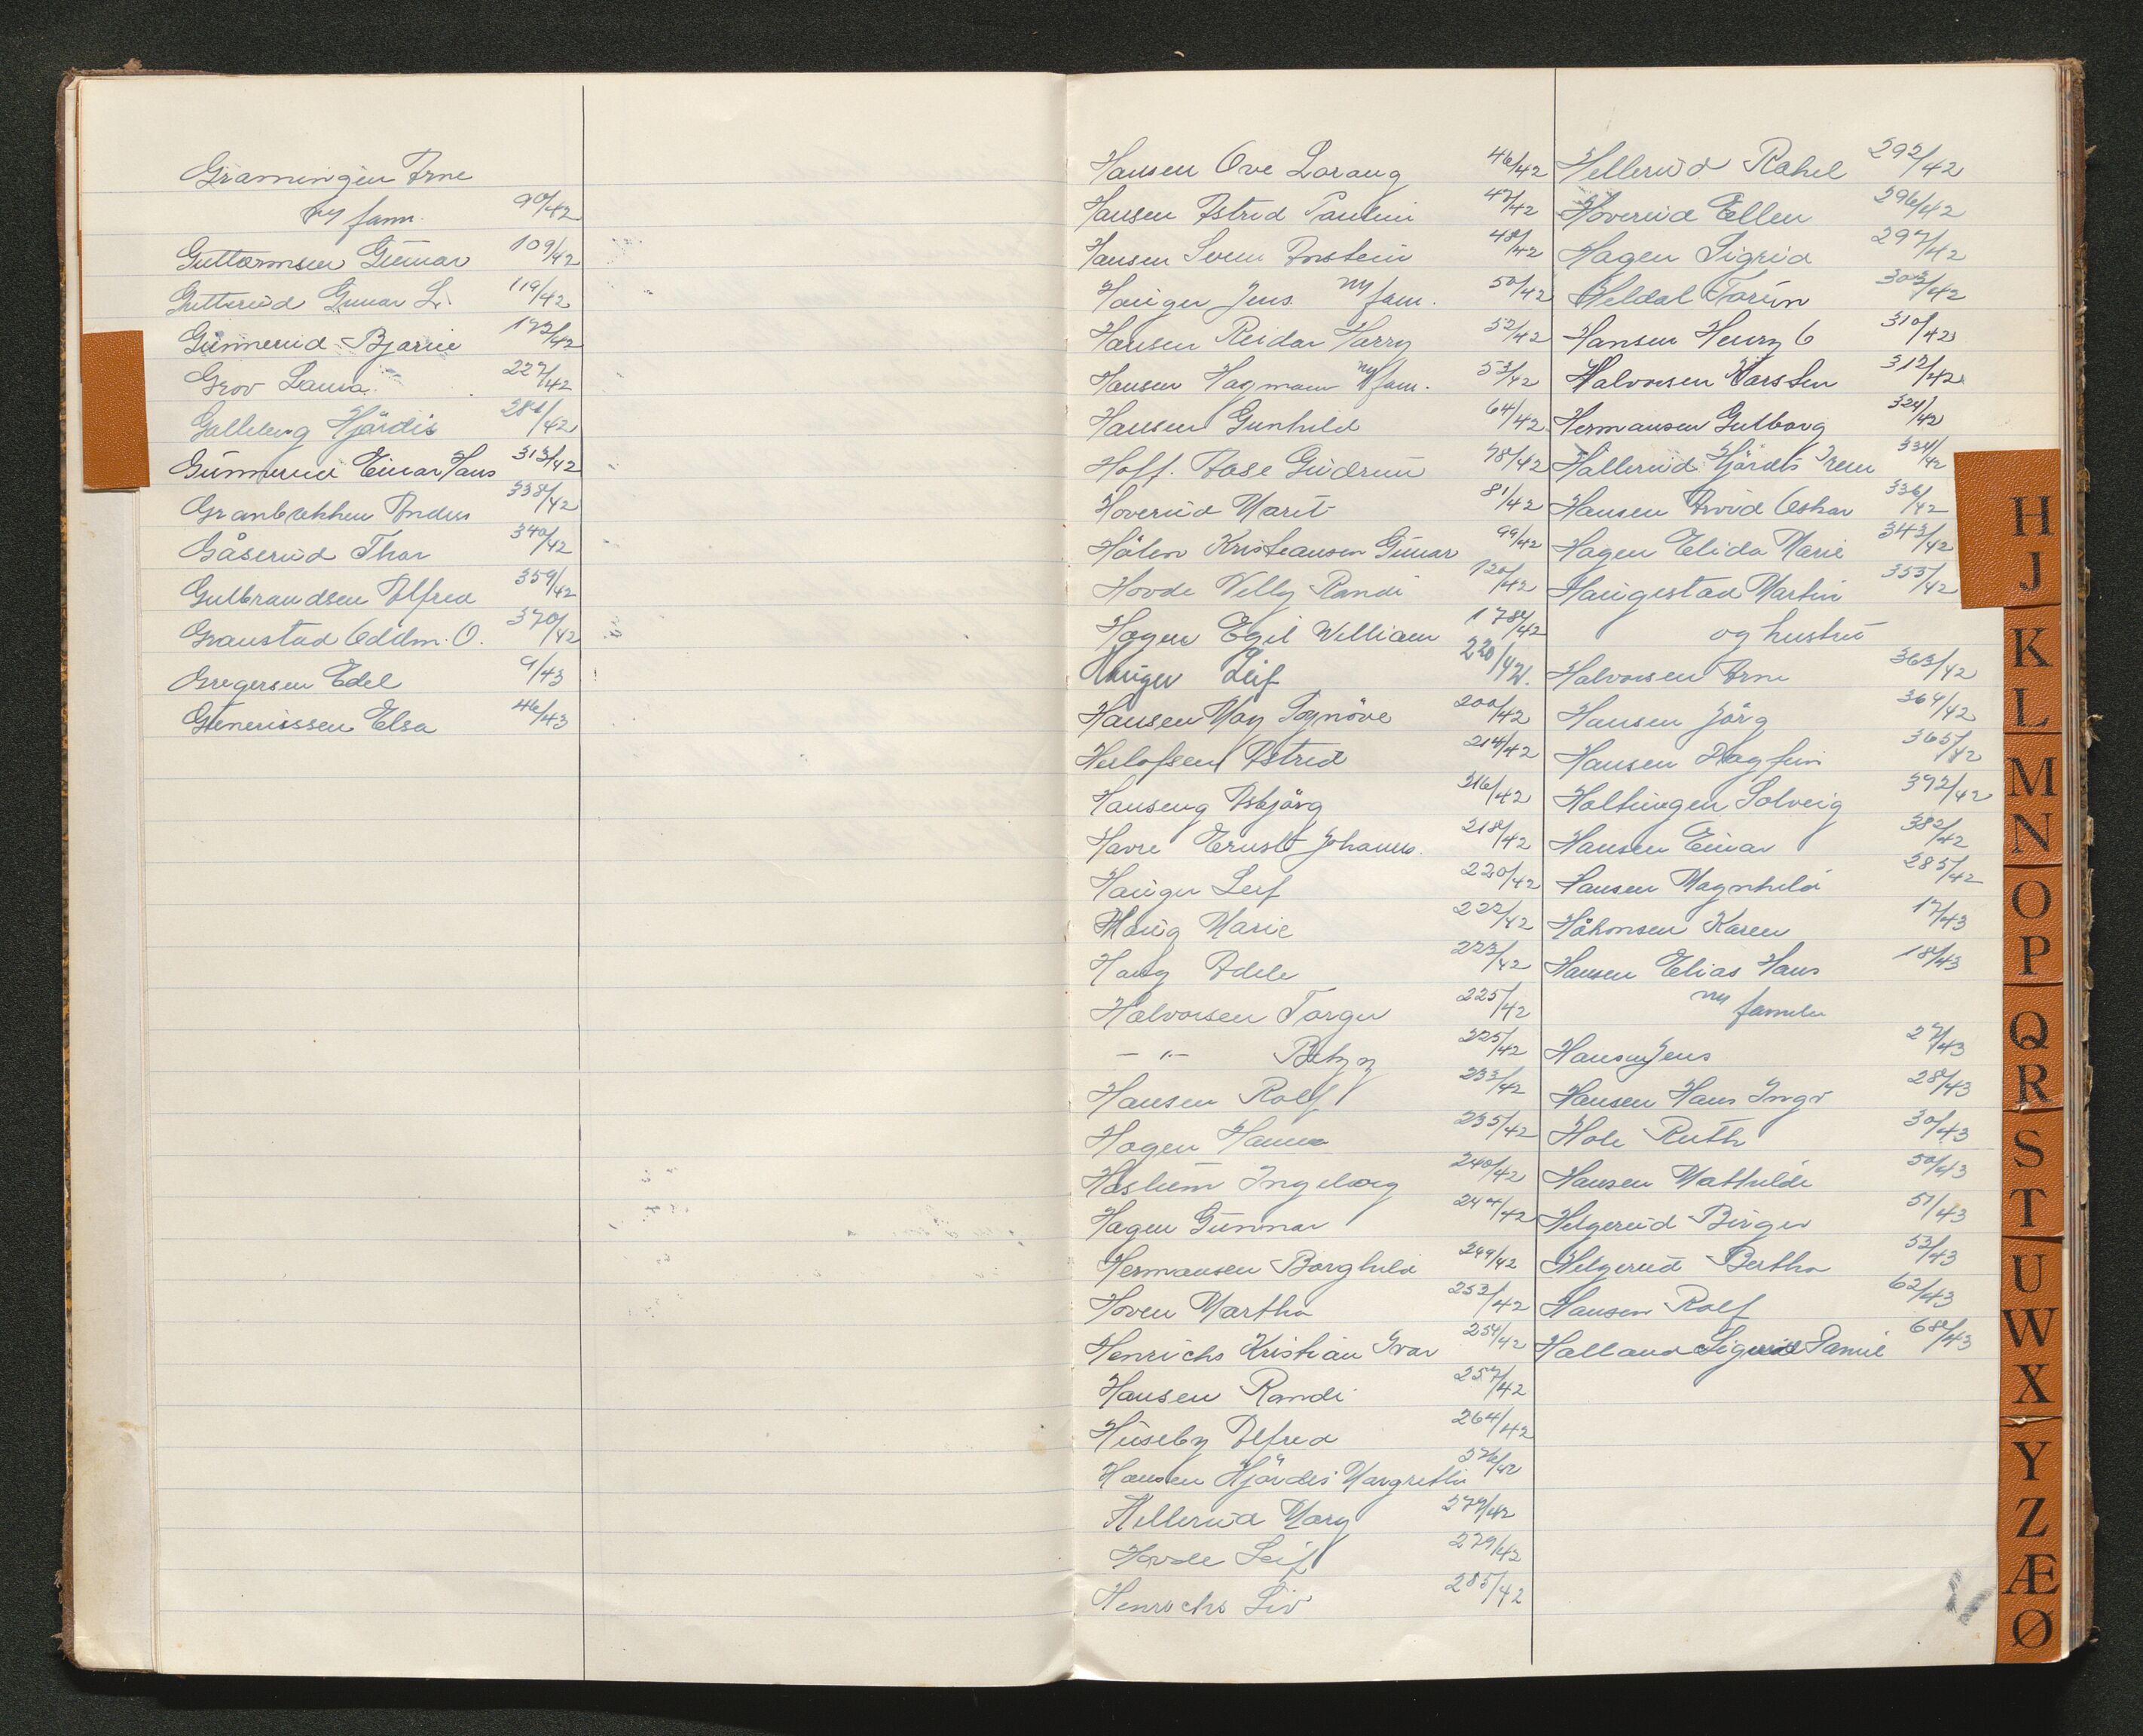 Gramingen Arne
ny fam. 90/42
Guttormsen Gunnar 109/42
Gutterud Gunar L. 119/42
Gunnerud Bjarne 173/42
Grov Laura 227/42
Galleberg Hjördis 281/42
Gunnerud Einar Hans 313/42
Granbakken Anders 338/42
Gåserud Thor 340/42
Gulbrandsen Alfred 359/42
Graustad Oddm. O. 370/42
Gregersen Edel 9/43
Gunerissen Elsa 46/43
Hansen Ove Lorang 46/42
Hansen Astrid Pauline 47/42
Hansen Svein Arnstein 48/42
Hauger Jens ny fam. 50/42
Hansen Reidar Harry 52/42
Hansen Hagmann ny fam. 53/42
Hansen Gunhild 64/42
Hoff. Aase Gudrun 78/42
Hoverud Marit 81/42
Hålen Kristiansen Gunar 99/42
Hovde Velly Randi 120/42
Hagen Egil William 178/42
Hauger Leif 220/42.
Hansen May Synnöve 200/42
Herlofsen Astrid 214/42
Hanseng Asbjörg 216/42
Havre Ernst Johannes. 218/42
Hauger Leif 220/42
Haug Marie 222/42
Haug Adele 223/42
Halvorsen Torger 225/42
— " — Betzy 225/42
Hansen Rolf 233/42
Hagen Hanna 235/42
Haslum Ingeborg 240/42
Hagen Gunnar 244/42
Hermansen Borghild 249/42
Hoven Martha 253/42
Henrichs Kristian Ivar 254/42
Hansen Randi 257/42
Huseby Alfred 264/42
Hansen Hjördis Margrethe 276/42
Hellerud Mary 279/42
Hovde Leif 279/42
Henrichs Liv 285/42
Hellerud Rakel 292/42
Hoverud Ellen 296/42
Hagen Sigrid 297/42
Heldal Torun 303/42
Hansen Henry O 310/42
Halvorsen Karsten 312/42
Hermansen Gulborg 324/42
Hallerud Hjördis Irene 334/42
Hansen Arvid Oskar 336/42
Hagen Elida Marie 343/42
Haugestad Martin 353/42
og hustru
Halvorsen Arne 363/42
Hansen Jörg 364/42
Hansen Dagfin 365/42
Haltingen Solveig 392/42
Hansen Einar 382/42
Hansen Magnhild 285/42
Håkonsen Karen 17/43
Hansen Elias Hans 18/43
ny familie
Hansen Jens 27/43
Hansen Hans Ingv 28/43
Hole Ruth 30/43
Hansen Mathilde 50/43
Helgerud Birger 51/43
Helgerud Bertha 53/43
Hansen Rolf 62/43
Halland Sigurd Samul 68/43
H
J
K
L
M
N
O
P
Q
R
S
T
U
W
X
Y
Z
Æ
Ø